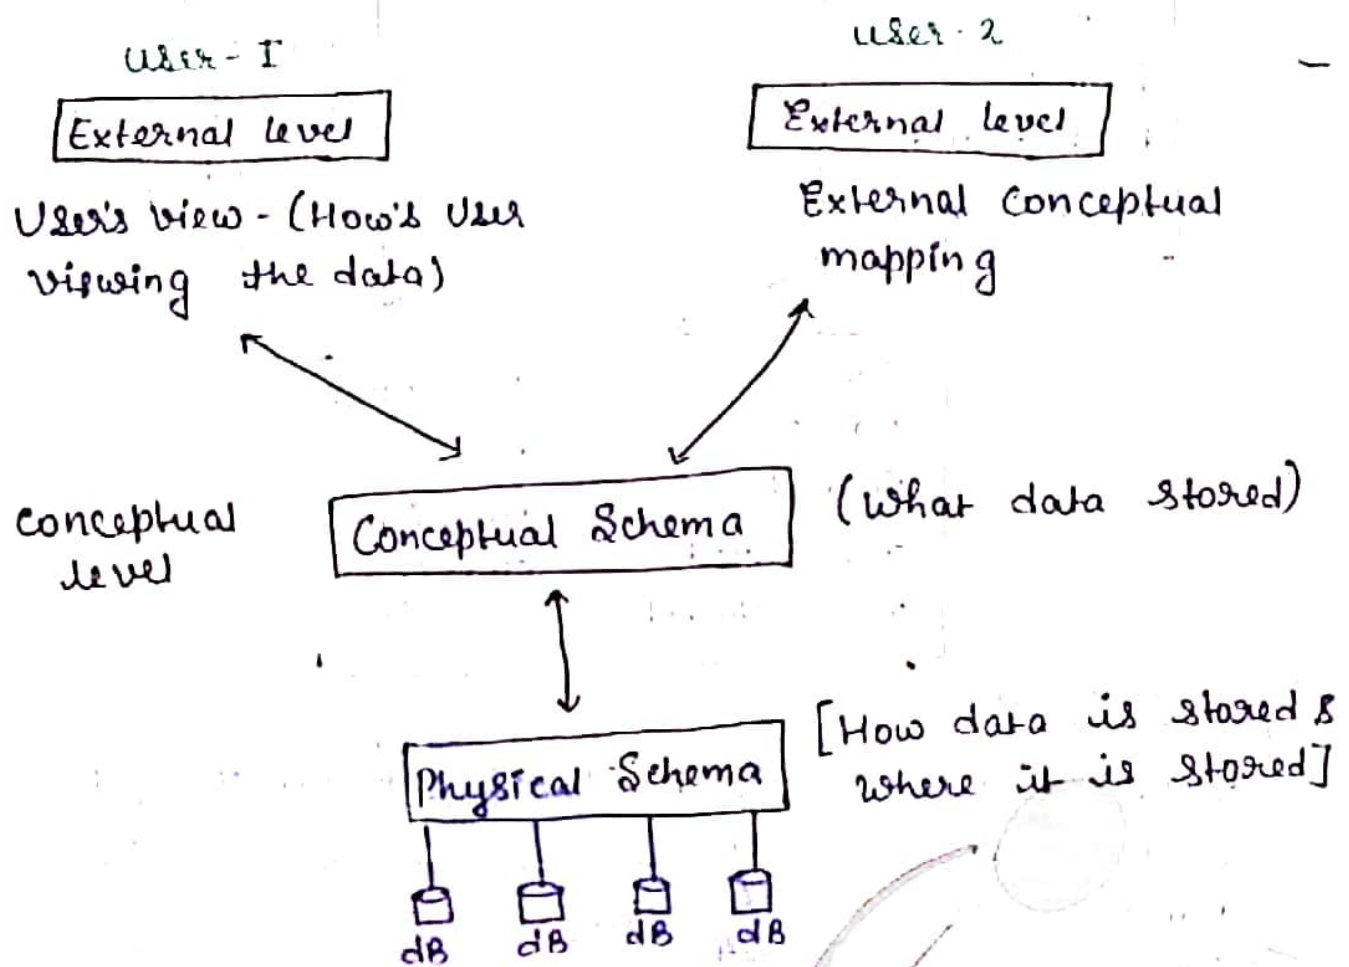 User - I
User - 2
External level
External level
User's view - (How's User
viewing the data)
External Conceptual
mapping
Conceptual
level
Conceptual Schema
(What data stored)
Physical Schema
[How data is stored &
where it is stored]
dB
dB
dB
dB